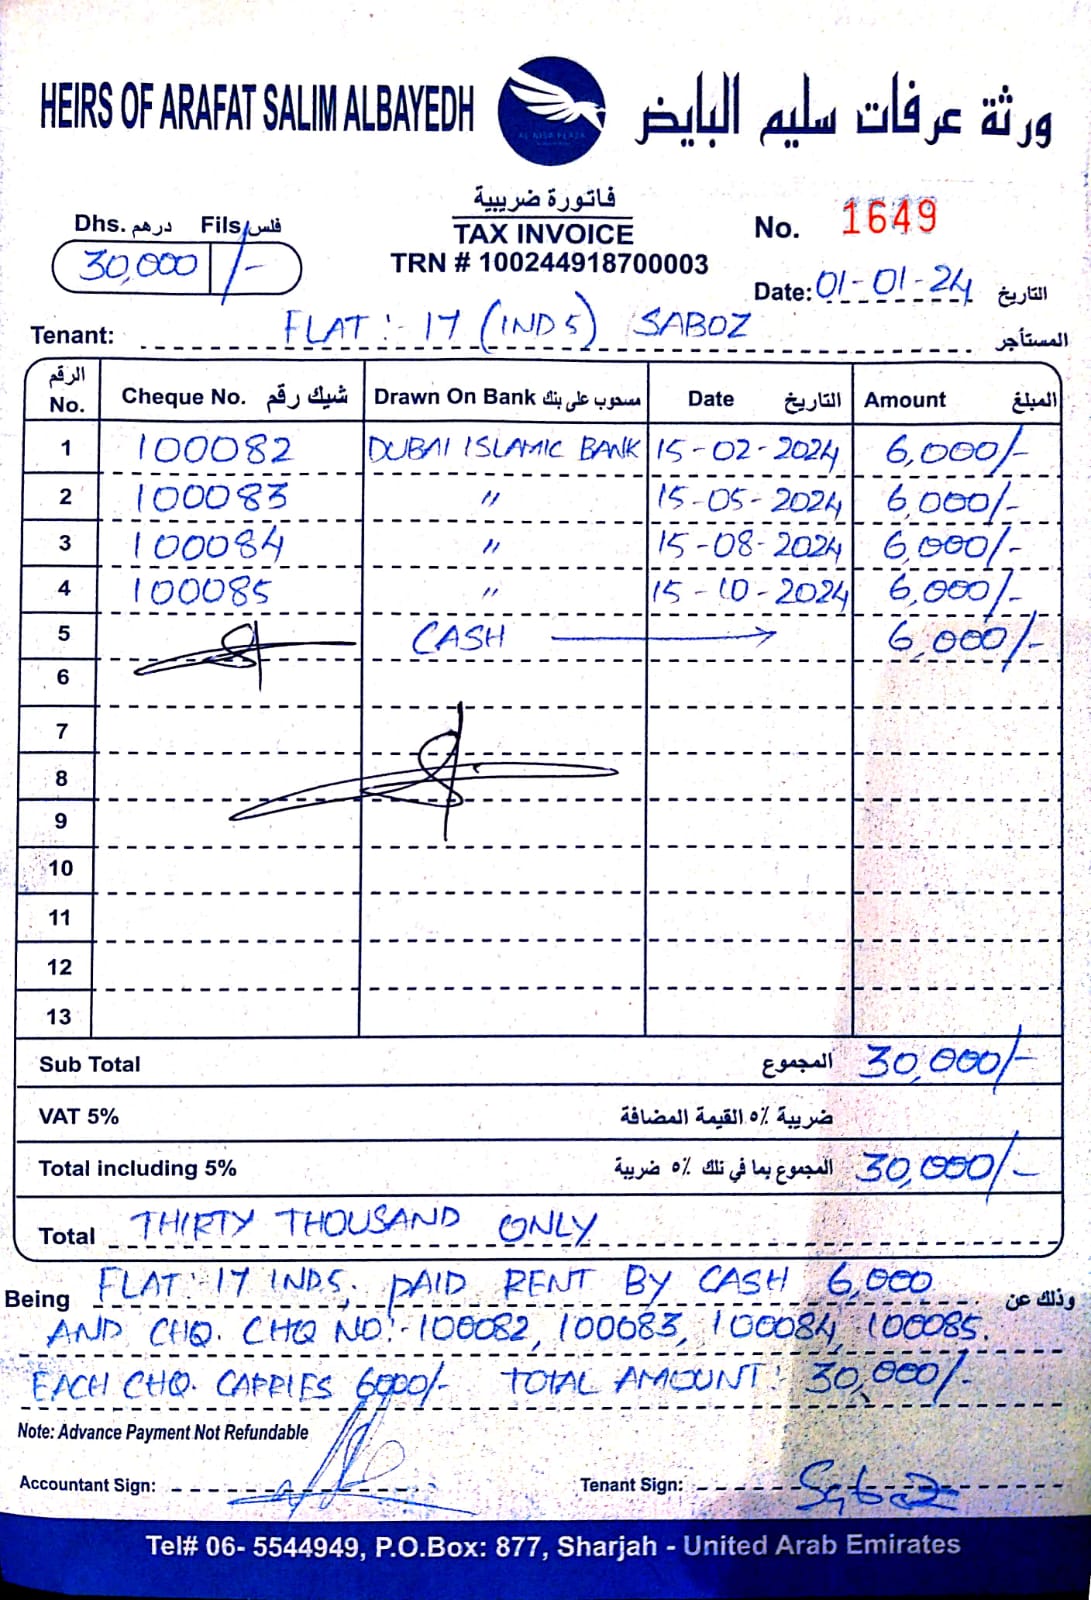 HEIRS OF ARAFAT SALIM ALBAYEDH
ورثة عرفات سليم البايض
AL NISR PLAZA
فاتورة ضريبية
TAX INVOICE
TRN # 100244918700003
Dhs. درهم Fils. فلس
30,000 /-
No. 1649
Date: 01-01-24 التاريخ
Tenant: FLAT:- 17 (IND5) SABOZ المستأجر
الرقم No. Cheque No. شيك رقم Drawn On Bank مسحوب على بنك Date التاريخ Amount المبلغ
1 100082 DUBAI ISLAMIC BANK 15-02-2024 6,000/-
2 100083 " 15-05-2024 6,000/-
3 100084 " 15-08-2024 6,000/-
4 100085 " 15-10-2024 6,000/-
5 CASH 6,000/-
6
7
8
9
10
11
12
13
Sub Total المجموع 30,000/-
VAT 5% ضريبة ٥٪ القيمة المضافة
Total including 5% المجموع بما في تلك ٥٪ ضريبة 30,000/-
Total THIRTY THOUSAND ONLY
Being FLAT:-17 IND5, PAID RENT BY CASH 6,000 وذلك عن
AND CHQ. CHQ NO:-100082, 100083, 100084, 100085.
EACH CHQ. CARRIES 6000/- TOTAL AMOUNT: 30,000/-
Note: Advance Payment Not Refundable
Accountant Sign:
Tenant Sign:
Tel# 06- 5544949, P.O.Box: 877, Sharjah - United Arab Emirates